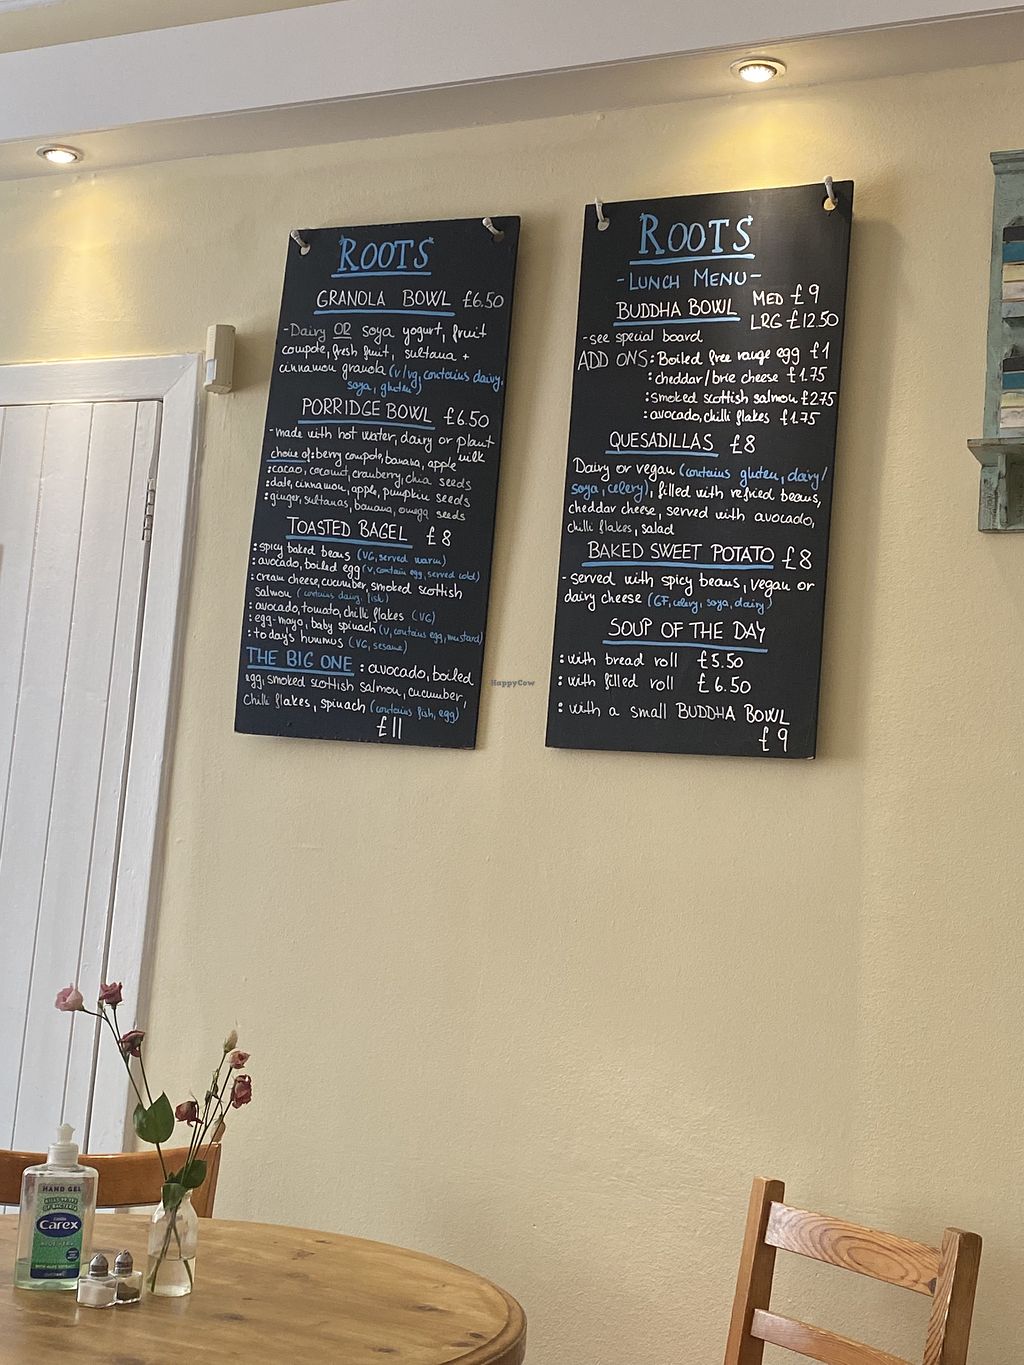 ROOTS
GRANOLA BOWL £6.50
-Dairy OR soya yogurt, fruit
compote, fresh fruit, sultana +
cinnamon granola (v/vg, contains dairy,
soya, gluten)
PORRIDGE BOWL £6.50
-made with hot water, dairy or plant
milk
choice of: berry compote, banana, apple
:cacao, coconut, cranberry, chia seeds
:date, cinnamon, apple, pumpkin seeds
:ginger, sultanas, banana, omega seeds
TOASTED BAGEL £8
:spicy baked beans (VG, served warm)
:avocado, boiled egg (v, contain egg, served cold)
:cream cheese, cucumber, smoked scottish
salmon (contains dairy, fish)
:avocado, tomato, chilli flakes (VG)
:egg-mayo, baby spinach (v, contains egg, mustard)
:today's hummus (VG, sesame)
THE BIG ONE : avocado, boiled
egg, smoked scottish salmon, cucumber,
chilli flakes, spinach (contains fish, egg)
£11
ROOTS
-LUNCH MENU-
BUDDHA BOWL MED £9
LRG £12.50
-see special board
ADD ONS: Boiled free range egg £1
:cheddar/brie cheese £1.75
:smoked scottish salmon £2.75
:avocado, chilli flakes £1.75
QUESADILLAS £8
Dairy or vegan (contains gluten, dairy/
soya, celery), filled with refried beans,
cheddar cheese, served with avocado,
chilli flakes, salad
BAKED SWEET POTATO £8
-served with spicy beans, vegan or
dairy cheese (GF, celery, soya, dairy)
SOUP OF THE DAY
:with bread roll £5.50
:with filled roll £6.50
:with a small BUDDHA BOWL
£9
HappyCow
HAND GEL
Carex